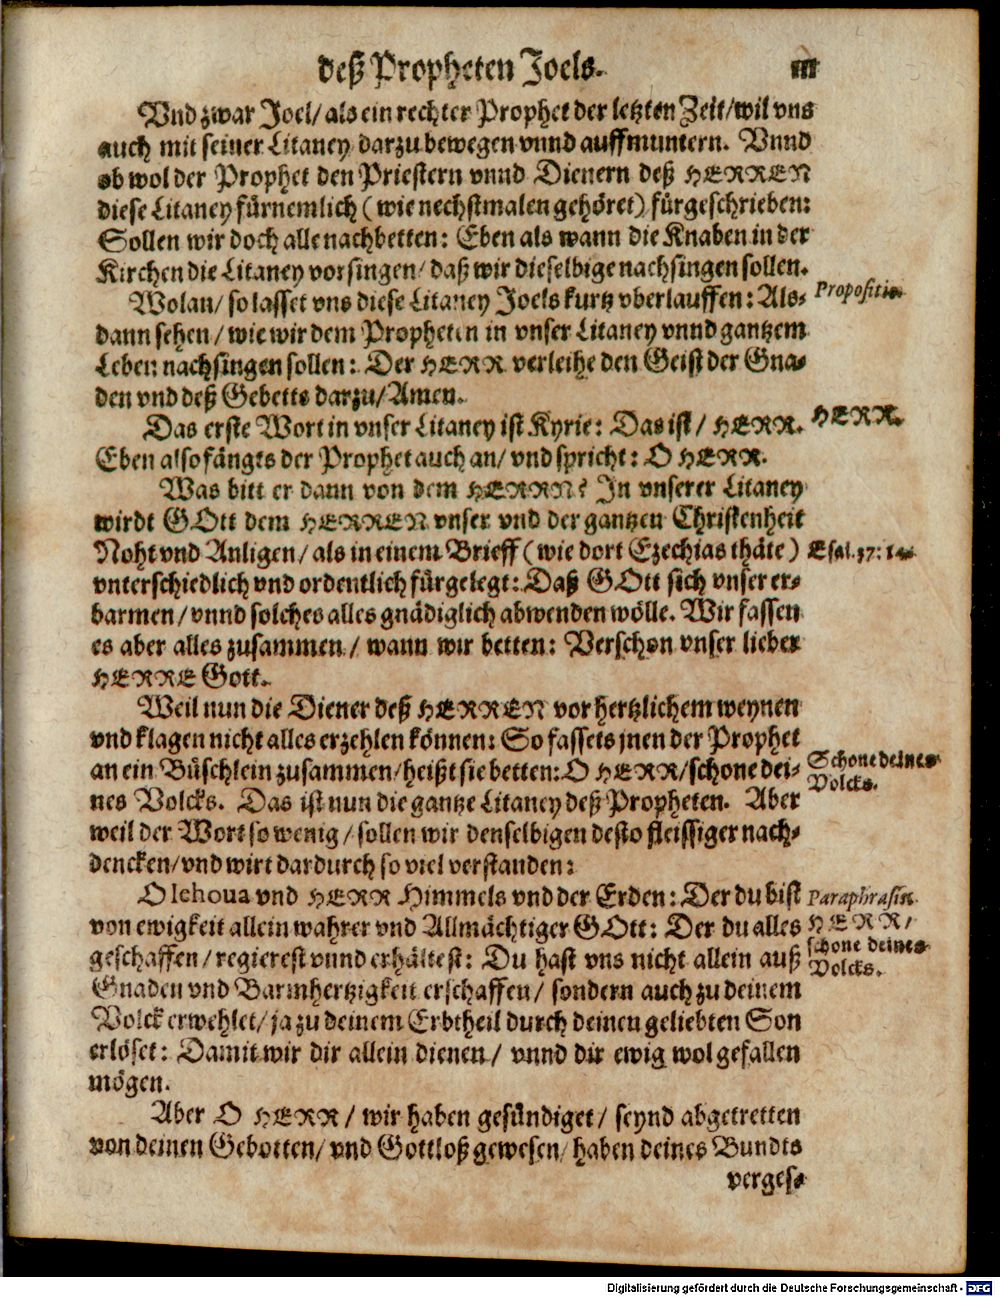 deß Propheten Joels.
Vnd zwar Joel/ als ein rechter Prophet der letzten Zeit/ wil vns
auch mit seiner Litaney darzu bewegen vnnd auffmuntern. Vnnd
ob wol der Prophet den Priestern vnnd Dienern deß HERREN
diese Litaney fürnemlich (wie nechstmalen gehöret) fürgeschrieben:
Sollen wir doch alle nachbetten: Eben als wann die Knaben in der
Kirchen die Litaney vorsingen/ daß wir dieselbige nachsingen sollen.
Wolan/ so lasset vns diese Litaney Joels kurtz vberlauffen: Als-
Propositio.
dann sehen/ wie wir dem Propheten in vnser Litaney vnnd gantzem
Leben nachsingen sollen: Der HERR verleihe den Geist der Gna-
den vnd deß Gebetts darzu/ Amen.
Das erste Wort in vnser Litaney ist Kyrie: Das ist/ HERR.
HERR.
Eben also fängts der Prophet auch an/ vnd spricht: O HERR.
Was bitt er dann von dem HERRN? In vnserer Litaney
wirdt GOtt dem HERREN vnser vnd der gantzen Christenheit
Noht vnd Anligen/ als in einem Brieff (wie dort Ezechias thäte)
Esai. 37: 14.
vnterschiedlich vnd ordentlich fürgelegt: Daß GOtt sich vnser er-
barmen/ vnnd solches alles gnädiglich abwenden wölle. Wir fassen
es aber alles zusammen/ wann wir betten: Verschon vnser lieber
HERRE Gott.
Weil nun die Diener deß HERREN vor hertzlichem weynen
vnd klagen nicht alles erzehlen können: So fassets jnen der Prophet
an ein Büschlein zusammen/ heißt sie betten: O HERR/ schone dei-
Schone deines
Volcks.
nes Volcks. Das ist nun die gantze Litaney deß Propheten. Aber
weil der Wort so wenig/ sollen wir denselbigen desto fleissiger nach-
dencken/ vnd wirt dardurch so viel verstanden:
O Iehoua vnd HERR Himmels vnd der Erden: Der du bist
Paraphrasis.
von ewigkeit allein wahrer vnd Allmächtiger GOtt: Der du alles
HERR/
geschaffen/ regierest vnnd erhältest: Du hast vns nicht allein auß
schone deines
Volcks.
Gnaden vnd Barmhertzigkeit erschaffen/ sondern auch zu deinem
Volck erwehlet/ ja zu deinem Erbtheil durch deinen geliebten Son
erlöset: Damit wir dir allein dienen/ vnnd dir ewig wolgefallen
mögen.
Aber O HERR/ wir haben gesündiget/ seynd abgetretten
von deinen Gebotten/ vnd Gottloß gewesen/ haben deines Bundts
verges-
Digitalisierung gefördert durch die Deutsche Forschungsgemeinschaft - DFG